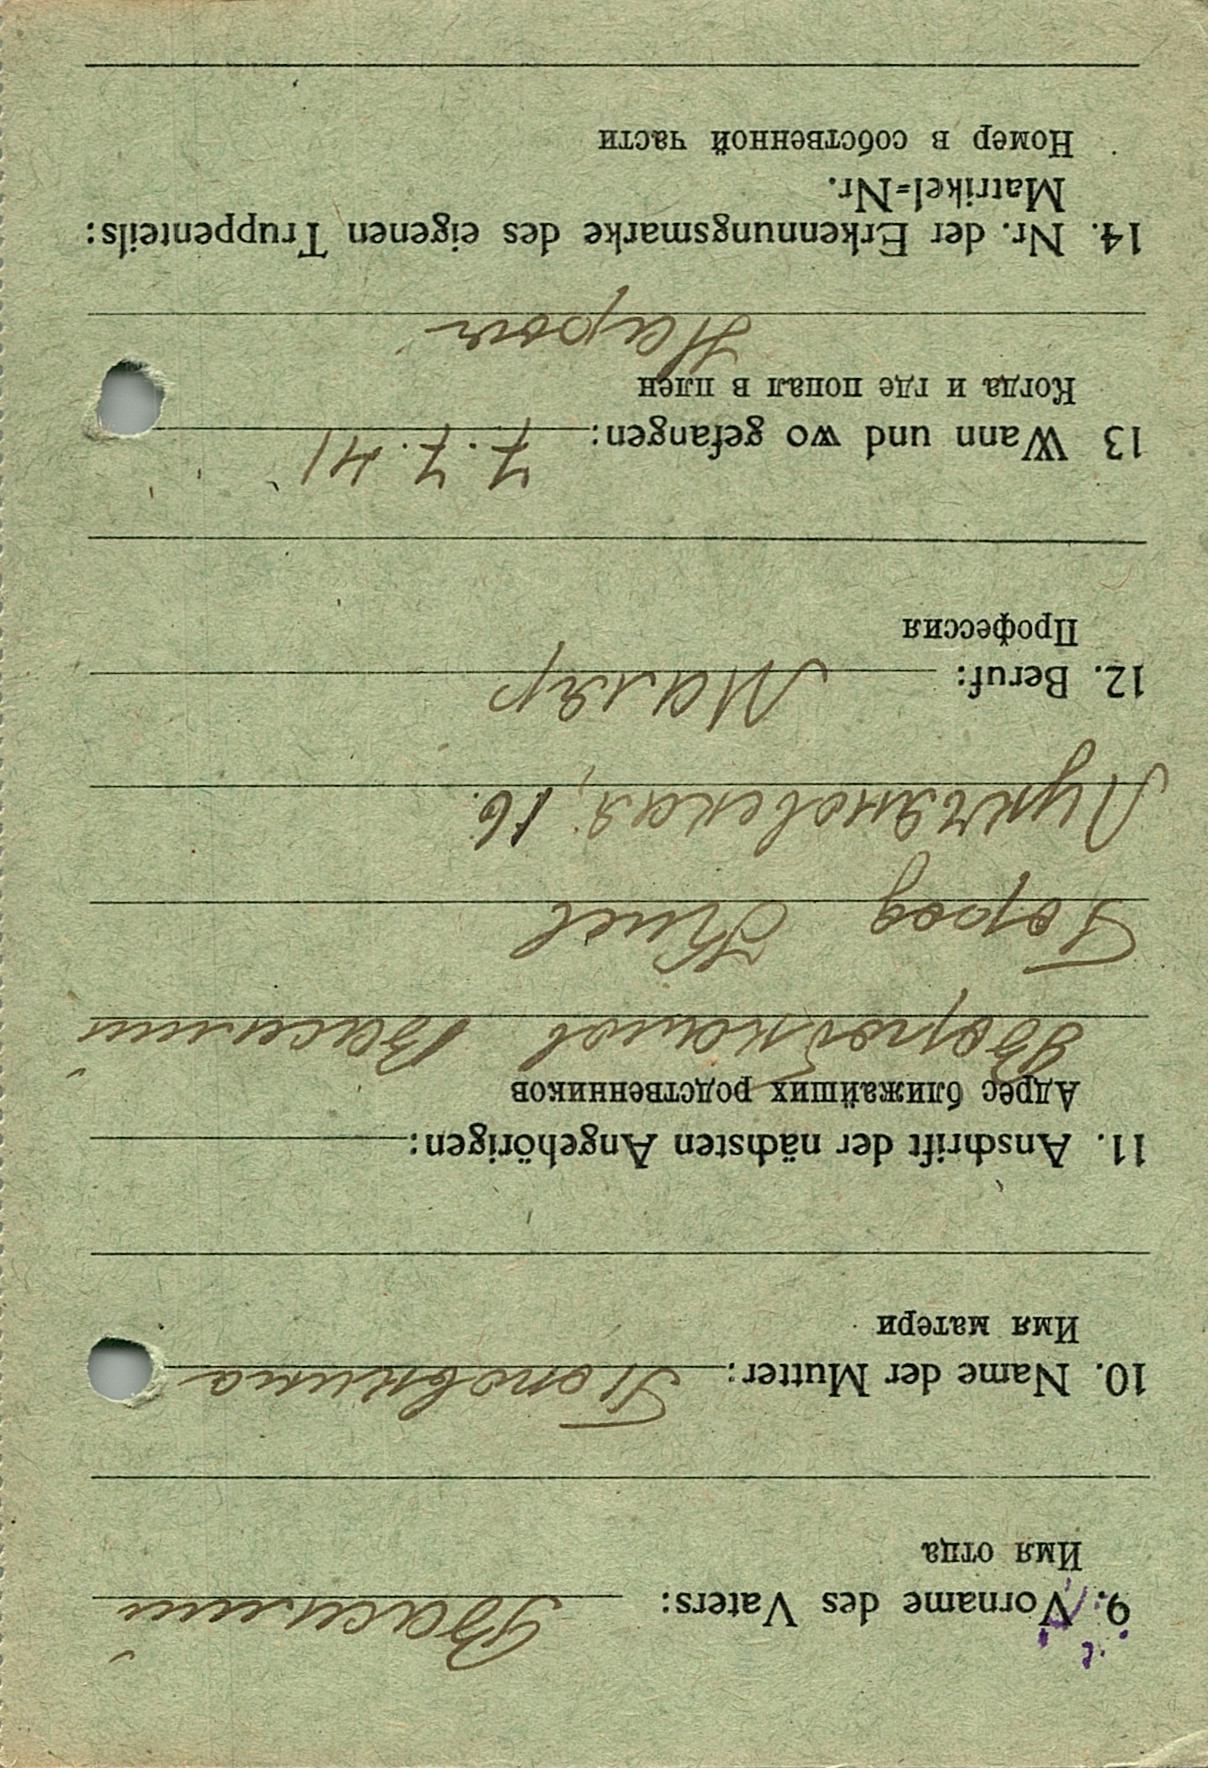 9. Vorname des Vaters: Василий
Имя отца
10. Name der Mutter:
Имя матери
11. Anschrift der nächsten Angehörigen:
Адрес ближайших родственников
Василий
Город Киев
Лукъяновская, 16.
12. Beruf: Маляр
Профессия
13 Wann und wo gefangen: 7.7.41
Когда и где попал в плен
14. Nr. der Erkennungsmarke des eigenen Truppenteils:
Matrikel=Nr.
Номер в собственной части